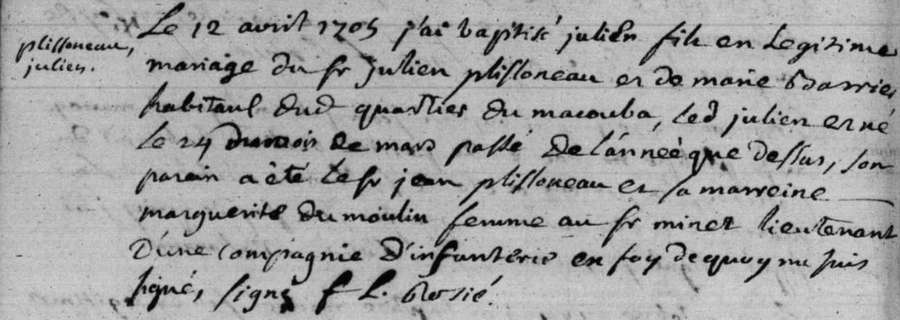 Le 12 avril 1705 j'ai baptisé julien fils en Legitime
plissoneau, julien.
mariage du sr julien plissoneau et de marie
habitant dud quartier du macouba, led julien est né
Le 24 du mois de mars passé de L'année que dessus, son
parain a été Le sr jean plissoneau et sa marreine
marguerite du moulin femme au sr minet lieutenant
D'une compagnie D'infanterie en foy de quoy me suis
signé, signé f L.